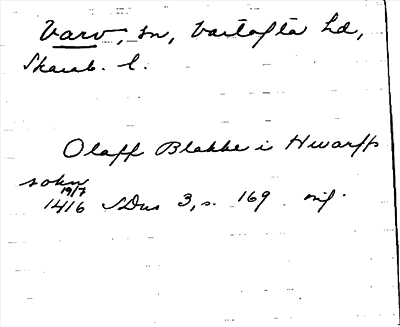 Varv, sn, Vartofta hd,
Skarab. l.
Olaff Blakke i Hwarffs
sokn
19/7
1416 SDns 3, s. 169 orig.